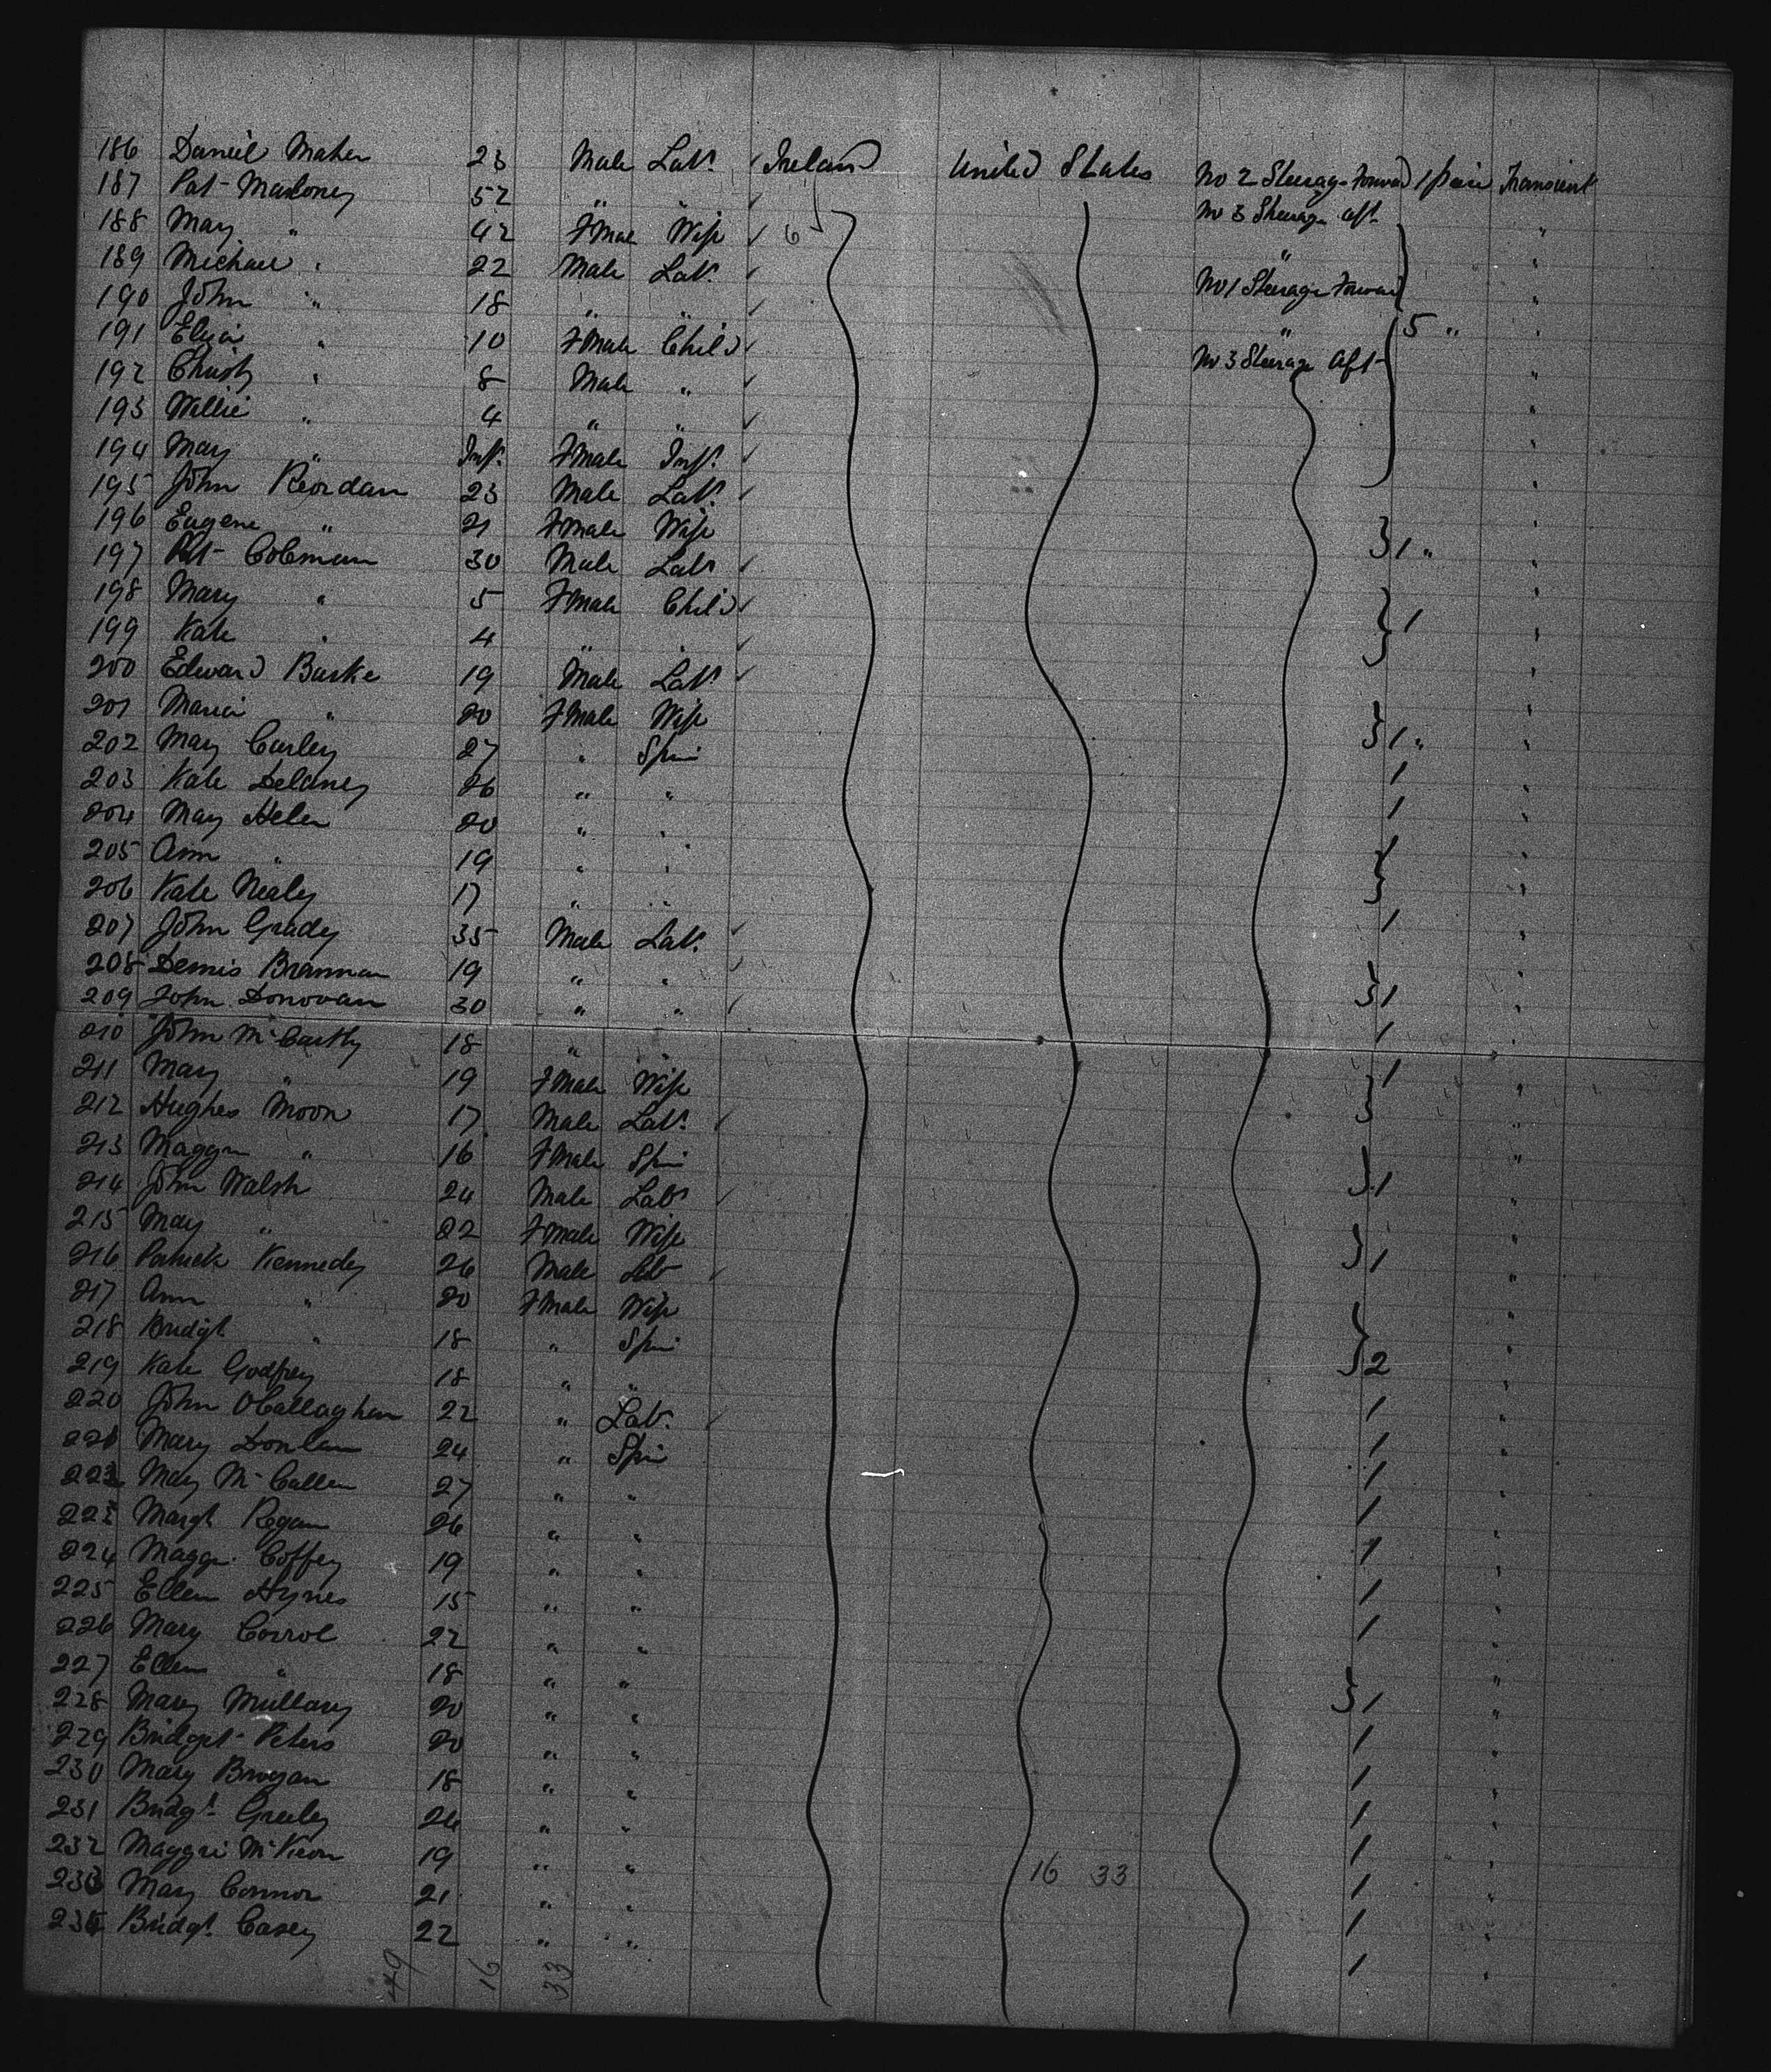 186 Daniel Maher 23 Male Labr Ireland United States No 2 Steerage Forward 1 piece Transient
187 Pat Maloney 52 " " No 3 Steerage aft "
188 Mary " 42 Fmale Wife 6 " "
189 Michael " 22 Male Labr No 1 Steerage Forward "
190 John " 18 " " " 5 " "
191 Eliza " 10 Fmale Child No 3 Steerage Aft "
192 Christy " 8 Male " "
193 Willie " 4 " " "
194 Mary " Inft Fmale Inft "
195 John Reordan 23 Male Labr "
196 Eugene " 21 Fmale Wife 1 " "
197 Pat Coleman 30 Male Labr "
198 Mary " 5 Fmale Child 1 "
199 Kate " 4 " " "
200 Edward Burke 19 Male Labr "
201 Maria " 20 Fmale Wife 1 " "
202 Mary Curley 27 " Spin 1 "
203 Kate Delaney 26 " " 1 "
204 Mary Helen 20 " " 1 "
205 Ann " 19 " " "
206 Kate Nealy 17 " " 1 "
207 John Grady 35 Male Labr "
208 Dennis Brannan 19 " " 1 "
209 John Donovan 30 " " 1 "
210 John McCarthy 18 " " 1 "
211 Mary " 19 Fmale Wife "
212 Hughes Moon 17 Male Labr "
213 Maggie " 16 Fmale Spin 1 "
214 John Walsh 24 Male Labr "
215 Mary " 22 Fmale Wife 1 "
216 Patrick Kennedy 26 Male Lab "
217 Ann " 20 Fmale Wife "
218 Bridgt " 18 " Spin 2 "
219 Kate Godfrey 18 " " 1 "
220 John OCallaghan 22 " Labr 1 "
221 Mary Donlan 24 " Spin 1 "
222 Mary McCallen 27 " " 1 "
223 Margt Regan 26 " " 1 "
224 Maggie Coffey 19 " " 1 "
225 Ellen Hynes 15 " " 1 "
226 Mary Corrol 22 " " "
227 Ellen " 18 " " 1 "
228 Mary Mullary 20 " " 1 "
229 Bridget Peters 20 " " 1 "
230 Mary Brogan 18 " " 1 "
231 Bridgt Greeley 24 " " 1 "
232 Maggie McKeon 19 " " 16 33 1 "
233 Mary Connor 21 " " 1 "
234 Bridgt Casey 22 " " 1 "
49 16 33